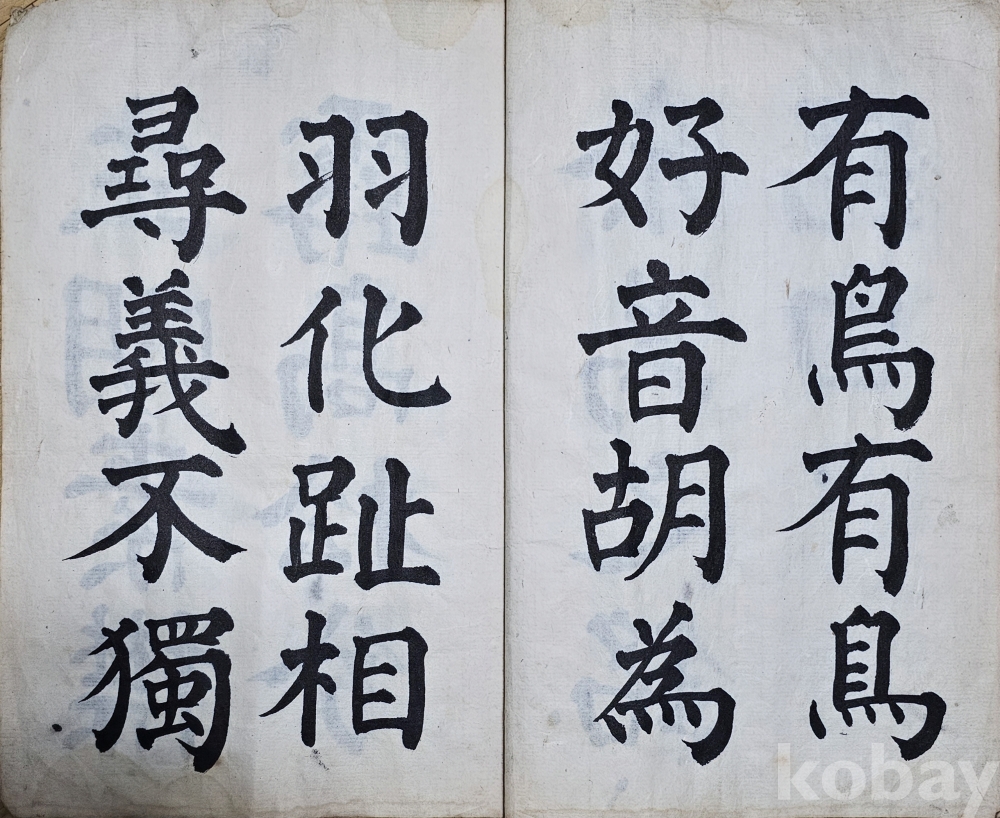 有鳥有鳥
好音胡為
羽化趾相
尋義不獨
kobay